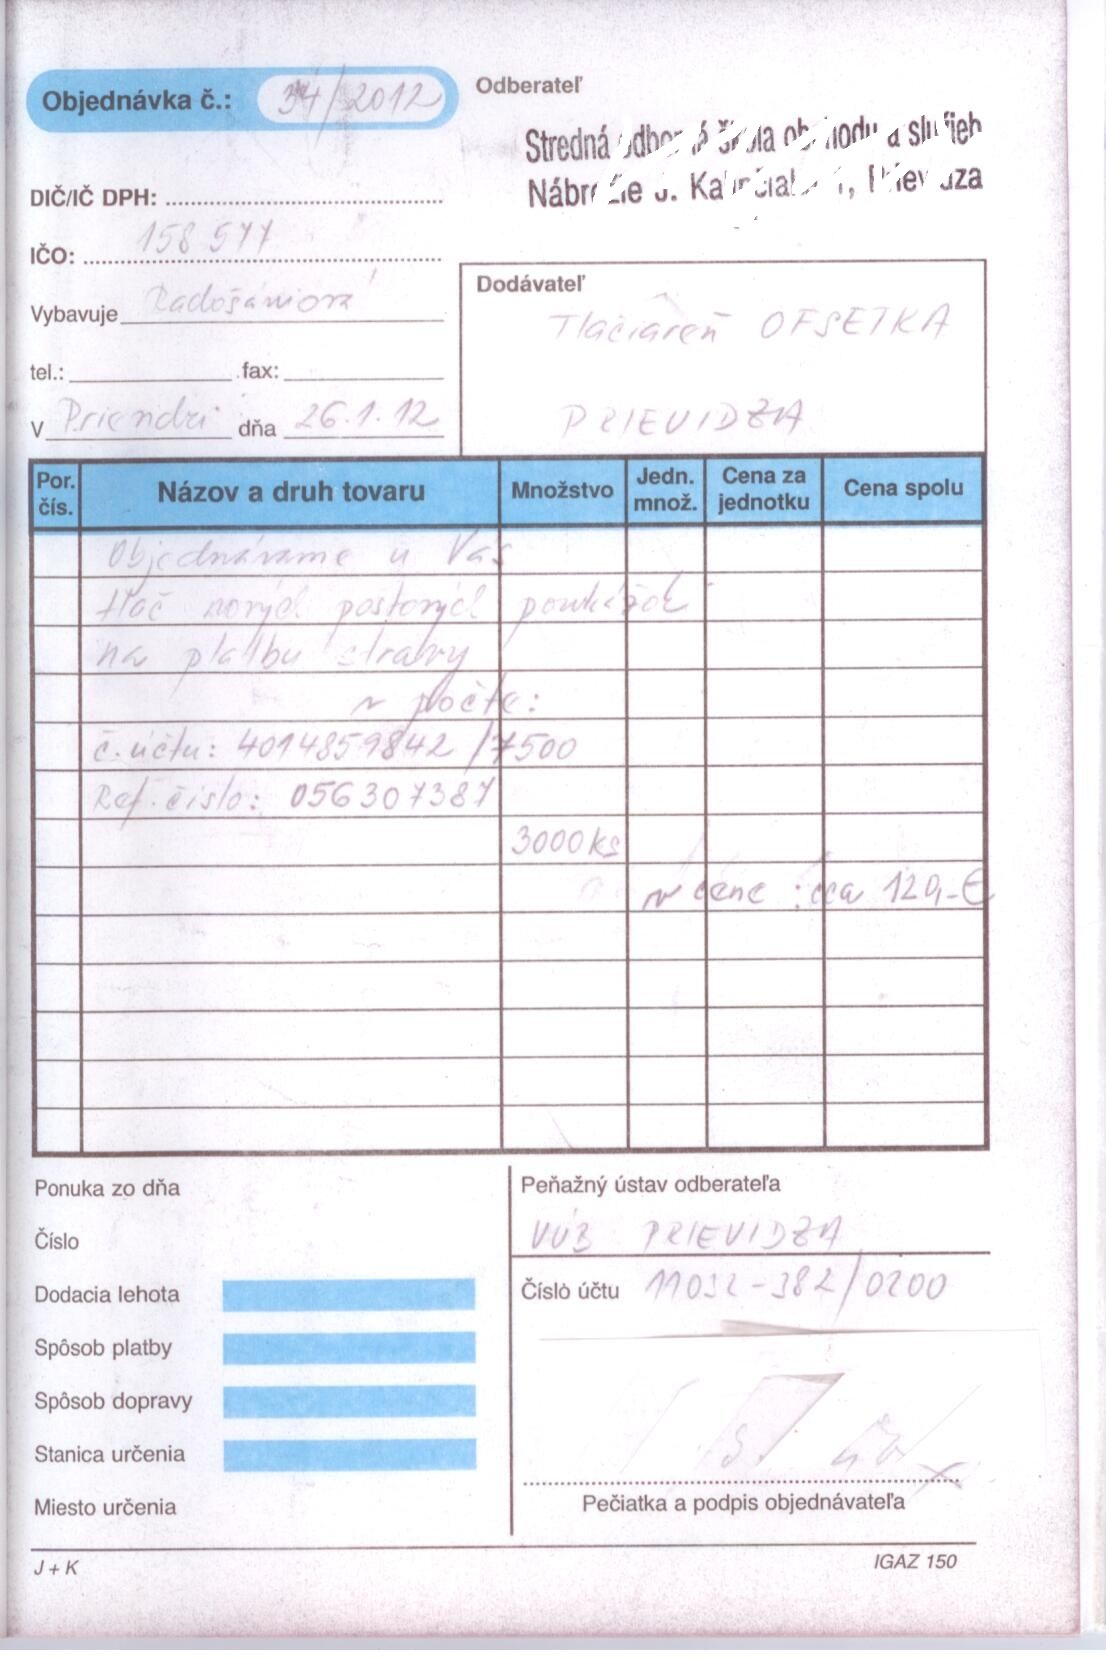 Objednávka č.: 34/2012
Odberateľ
Stredná odborná škola obchodu a služieb
Nábrežie J. Kalinčiaka 1, Prievidza
DIČ/IČ DPH:
IČO: 158 577
Vybavuje Radošániová
tel.: fax:
V Prievidzi dňa 26.1.12
Dodávateľ
Tlačiareň OFSETKA
PRIEVIDZA
Por. čís. Názov a druh tovaru Množstvo Jedn. množ. Cena za jednotku Cena spolu
Objednávame u Vás
tlač nových poštových poukážok
na platbu stravy
v počte:
č. účtu: 4014859842/7500
Ref. číslo: 056307387
3000 ks
v cene : cca 120,- €
Ponuka zo dňa
Číslo
Dodacia lehota
Spôsob platby
Spôsob dopravy
Stanica určenia
Miesto určenia
Peňažný ústav odberateľa
VÚB PRIEVIDZA
Číslo účtu 11032-382/0200
Pečiatka a podpis objednávateľa
J + K
IGAZ 150